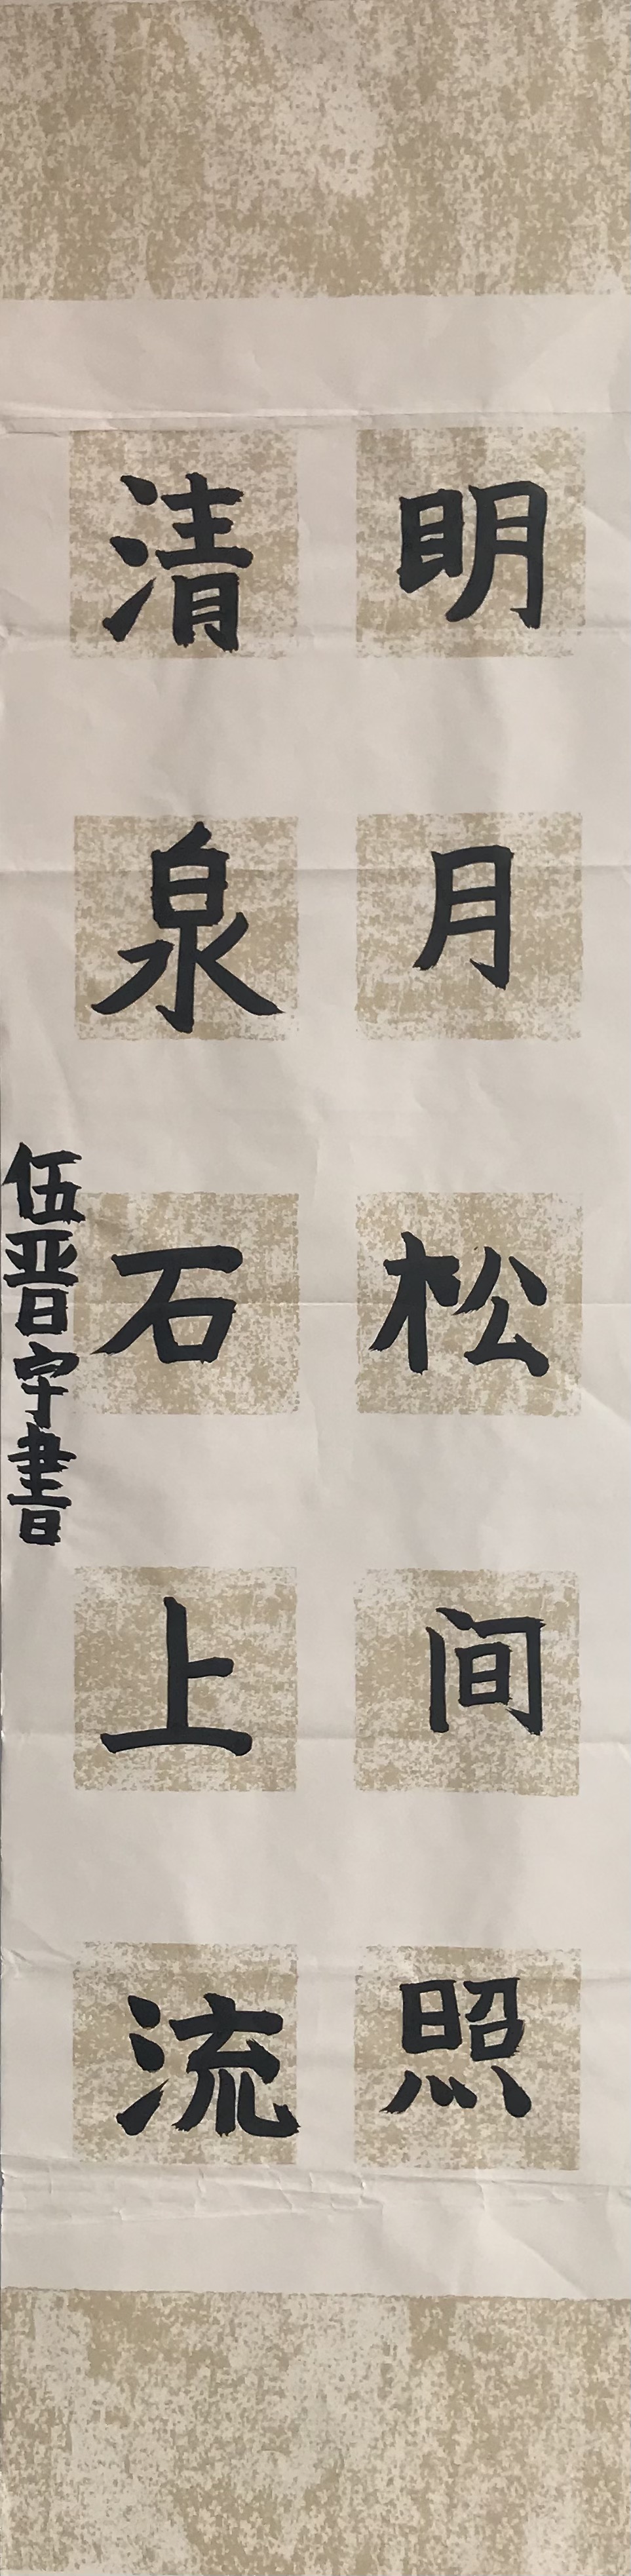 明月松间照
清泉石上流
伍晋宇書